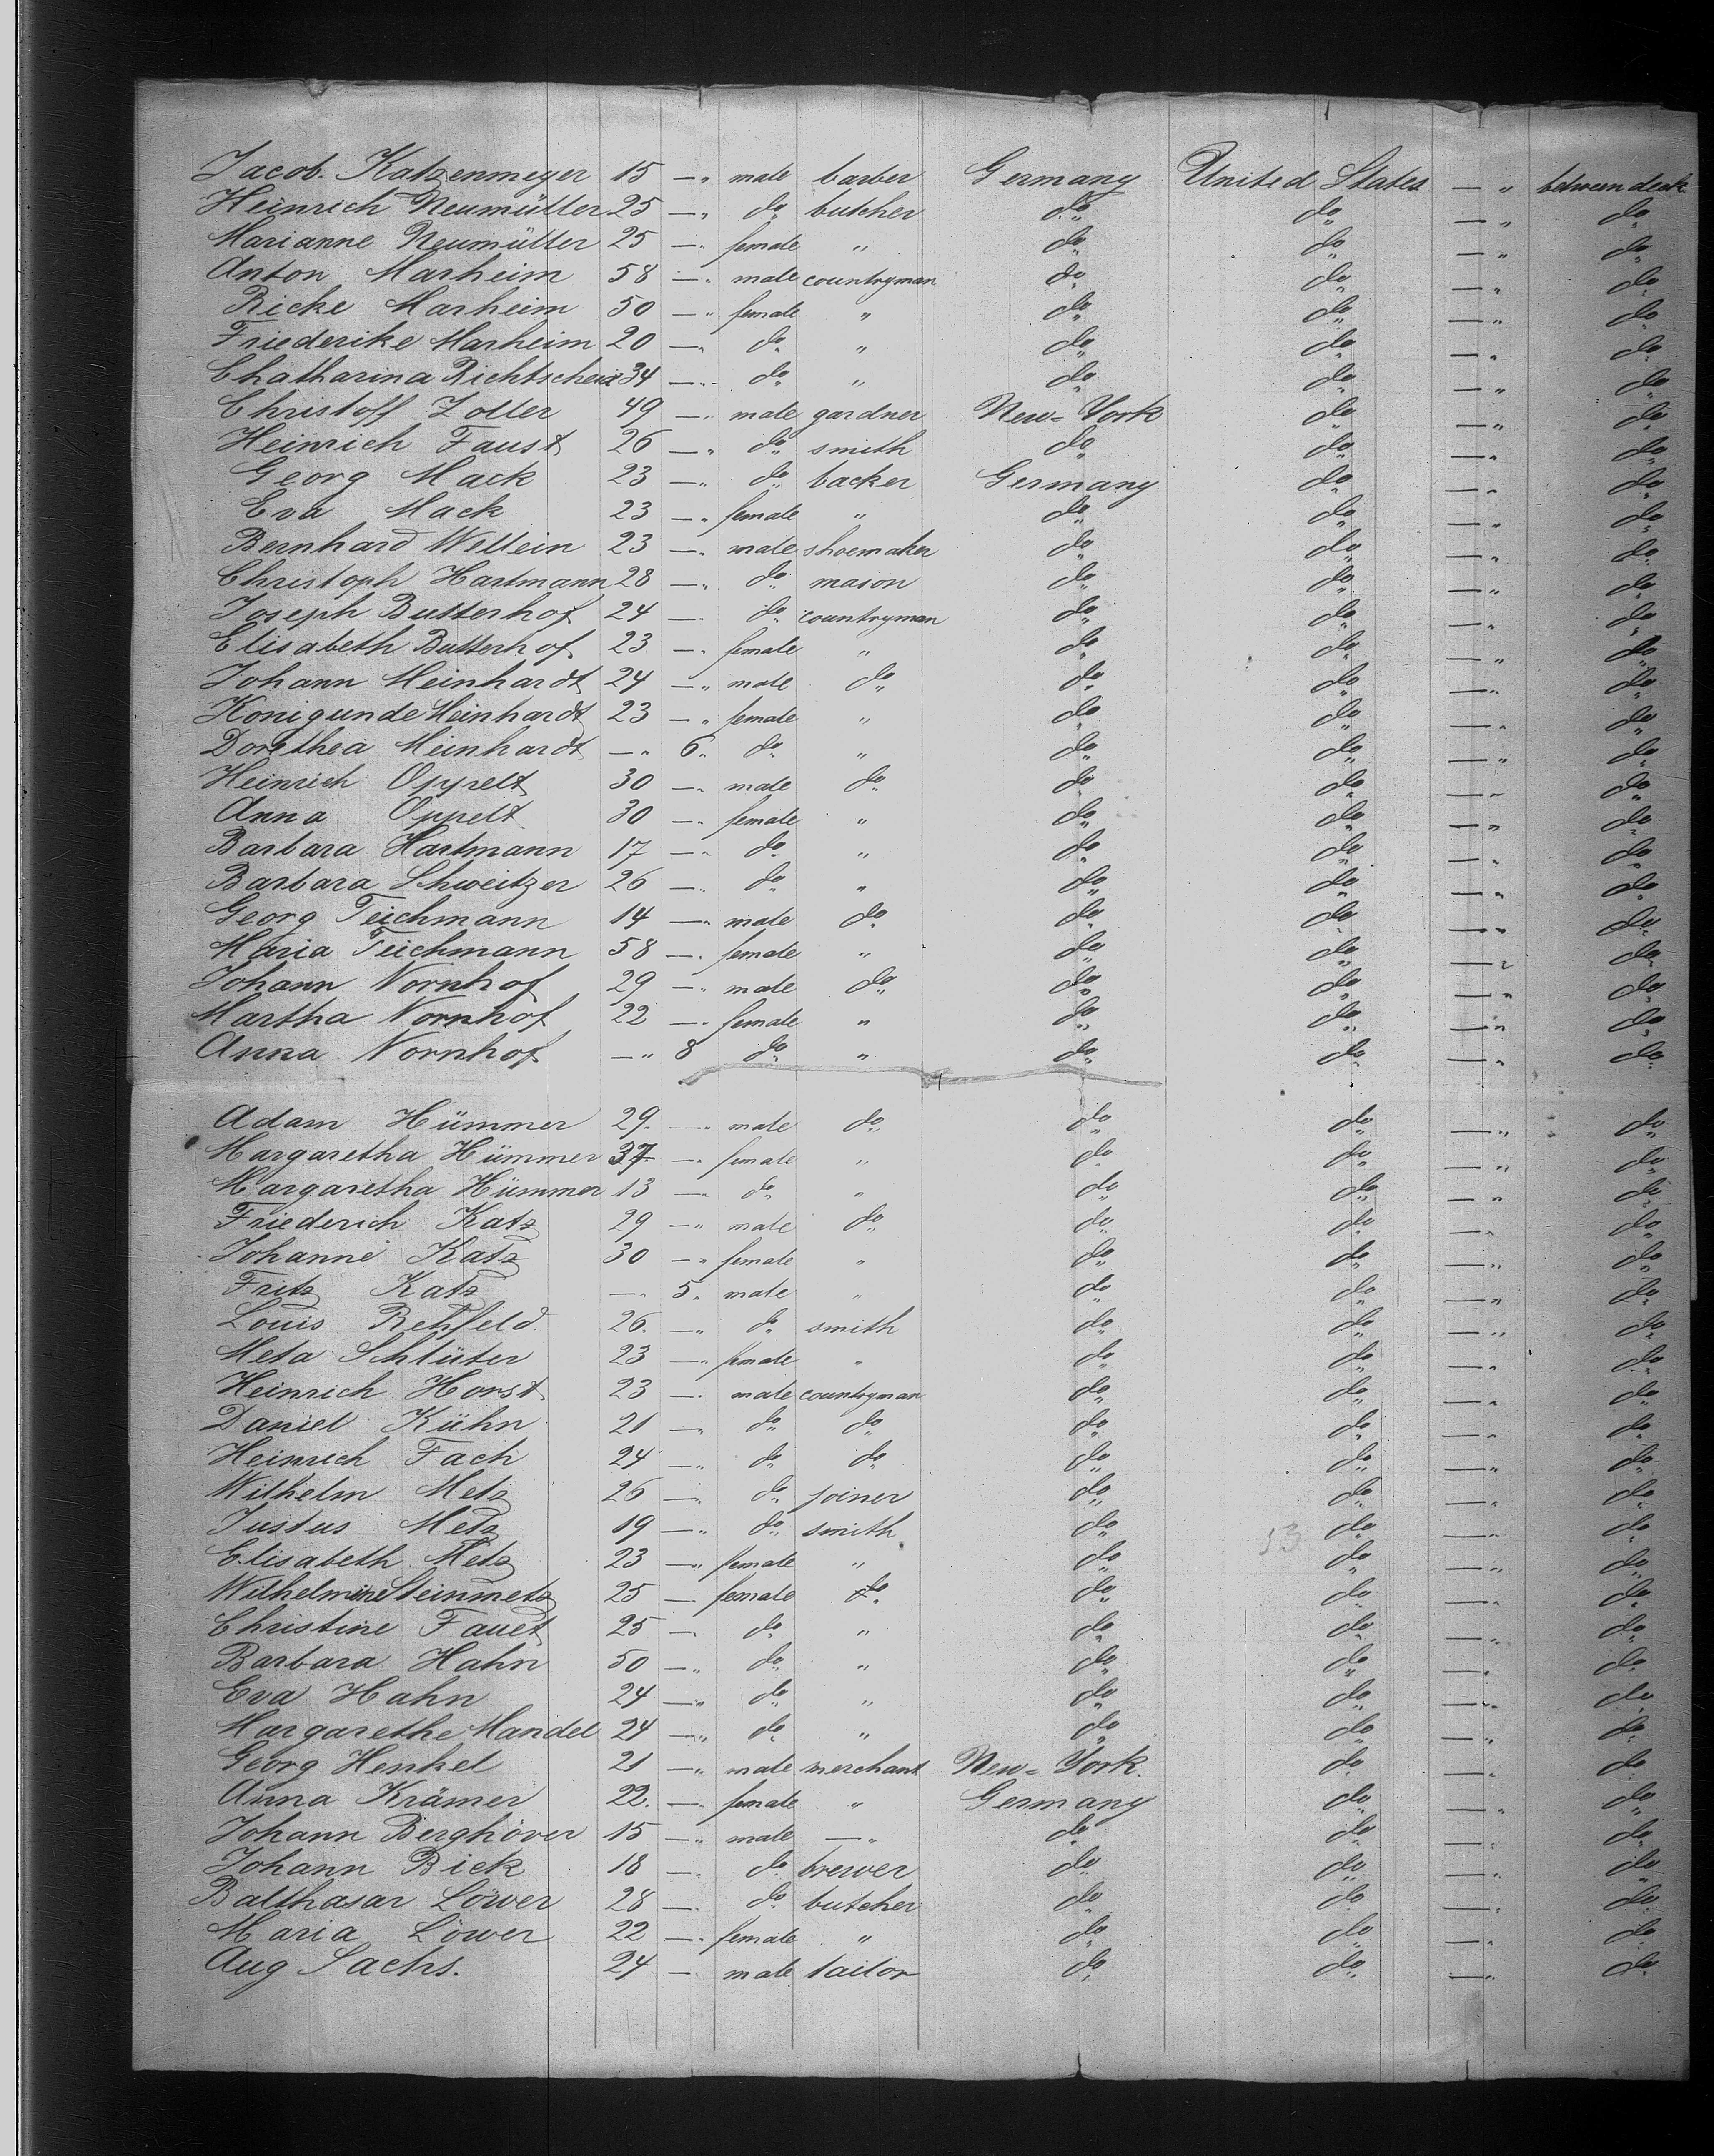 Jacob. Katzenmeyer 15 —„ male barber Germany United States —„ between deck
Heinrich Neumüller 25 —„ do„ butcher do„ do„ —„ do„
Marianne Neumüller 25 —„ female „ do„ do„ —„ do„
Anton Marheim 58 —„ male countryman do„ do„ —„ do„
Ricke Marheim 50 —„ female „ do„ do„ —„ do„
Friederike Marheim 20 —„ do„ „ do„ do„ —„ do„
Chatharina 34 —„ do„ „ do„ do„ —„ do„
Christoff Zoller 49 —„ male gardner New-York do„ —„ do„
Heinrich Faust 26 —„ do„ smith do„ do„ —„ do„
Georg Mack 23 —„ do„ backer Germany do„ —„ do„
Eva Mack 23 —„ female „ do„ do„ —„ do„
Bernhard Wellein 23 —„ male shoemaker do„ do„ —„ do„
Christoph Hartmann 28 —„ do„ mason do„ do„ —„ do„
Joseph Butterhof 24 —„ do„ countryman do„ do„ —„ do„
Elisabeth Butterhof 23 —„ female „ do„ do„ —„ do„
Johann Meinhardt 24 —„ male do„ do„ do„ —„ do„
Konigunde Meinhardt 23 —„ female „ do„ do„ —„ do„
Dorethea Meinhardt —„ 6„ do„ „ do„ do„ —„ do„
Heinrich Oppelt 30 —„ male do„ do„ do„ —„ do„
Anna Oppelt 30 —„ female „ do„ do„ —„ do„
Barbara Hartmann 17 —„ do„ „ do„ do„ —„ do„
Barbara Schweitzer 26 —„ do„ „ do„ do„ —„ do„
Georg Teichmann 14 —„ male do„ do„ do„ —„ do„
Maria Teichmann 58 —„ female „ do„ do„ —„ do„
Johann Nornhof 29 —„ male do„ do„ do„ —„ do„
Martha Nornhof 22 —„ female „ do„ do„ —„ do„
Anna Nornhof —„ 8 do„ „ do„ do„ —„ do„
Adam Hümmer 29. —„ male do„ do„ do„ —„ do„
Margaretha Hümmer 37 —„ female „ do„ do„ —„ do„
Margaretha Hümmer 13 —„ do„ „ do„ do„ —„ do„
Friederich Katz 29 —„ male do„ do„ do„ —„ do„
Johanne Katz 30 —„ female „ do„ do„ —„ do„
Fritz Katz —„ 5„ male „ do„ do„ —„ do„
Louis Rehfeld. 26. —„ do„ smith do„ do„ —„ do„
Meta Schlüter 23 —„ female „ do„ do„ —„ do„
Heinrich Horst 23 —„ male countryman do„ do„ —„ do„
Daniel Kühn 21 —„ do„ do„ do„ do„ —„ do„
Heinrich Fach 24 —„ do„ do„ do„ do„ —„ do„
Wilhelm Metz 26 —„ do„ joiner do„ do„ —„ do„
Justus Metz 19 —„ do„ smith do„ 53 do„ —„ do„
Elisabeth Metz 23 —„ female „ do„ do„ —„ do„
Wilhelmine Steinmetz 25 — female do„ do„ do„ —„ do„
Christine Fauet 25 —„ do„ „ do„ do„ —„ do„
Barbara Hahn 50 —„ do„ „ do„ do„ —„ do„
Eva Hahn 24 —„ do„ „ do„ do„ —„ do„
Margarethe Mandel 24 —„ do„ „ do„ do„ —„ do„
Georg Henkel 21 —„ male merchant New-York. do„ —„ do„
Anna Krämer 22. —„ female „ Germany do„ —„ do„
Johann Berghöver 15 —„ male —„ do„ do„ —„ do„
Johann Bick 18 —„ do„ brewer do„ do„ —„ do„
Balthasar Löwer 28 —„ do„ butcher do„ do„ —„ do„
Maria Löwer 22 —„ female „ do„ do„ —„ do„
Aug Sachs. 24 — male tailor do„ do„ —„ do„